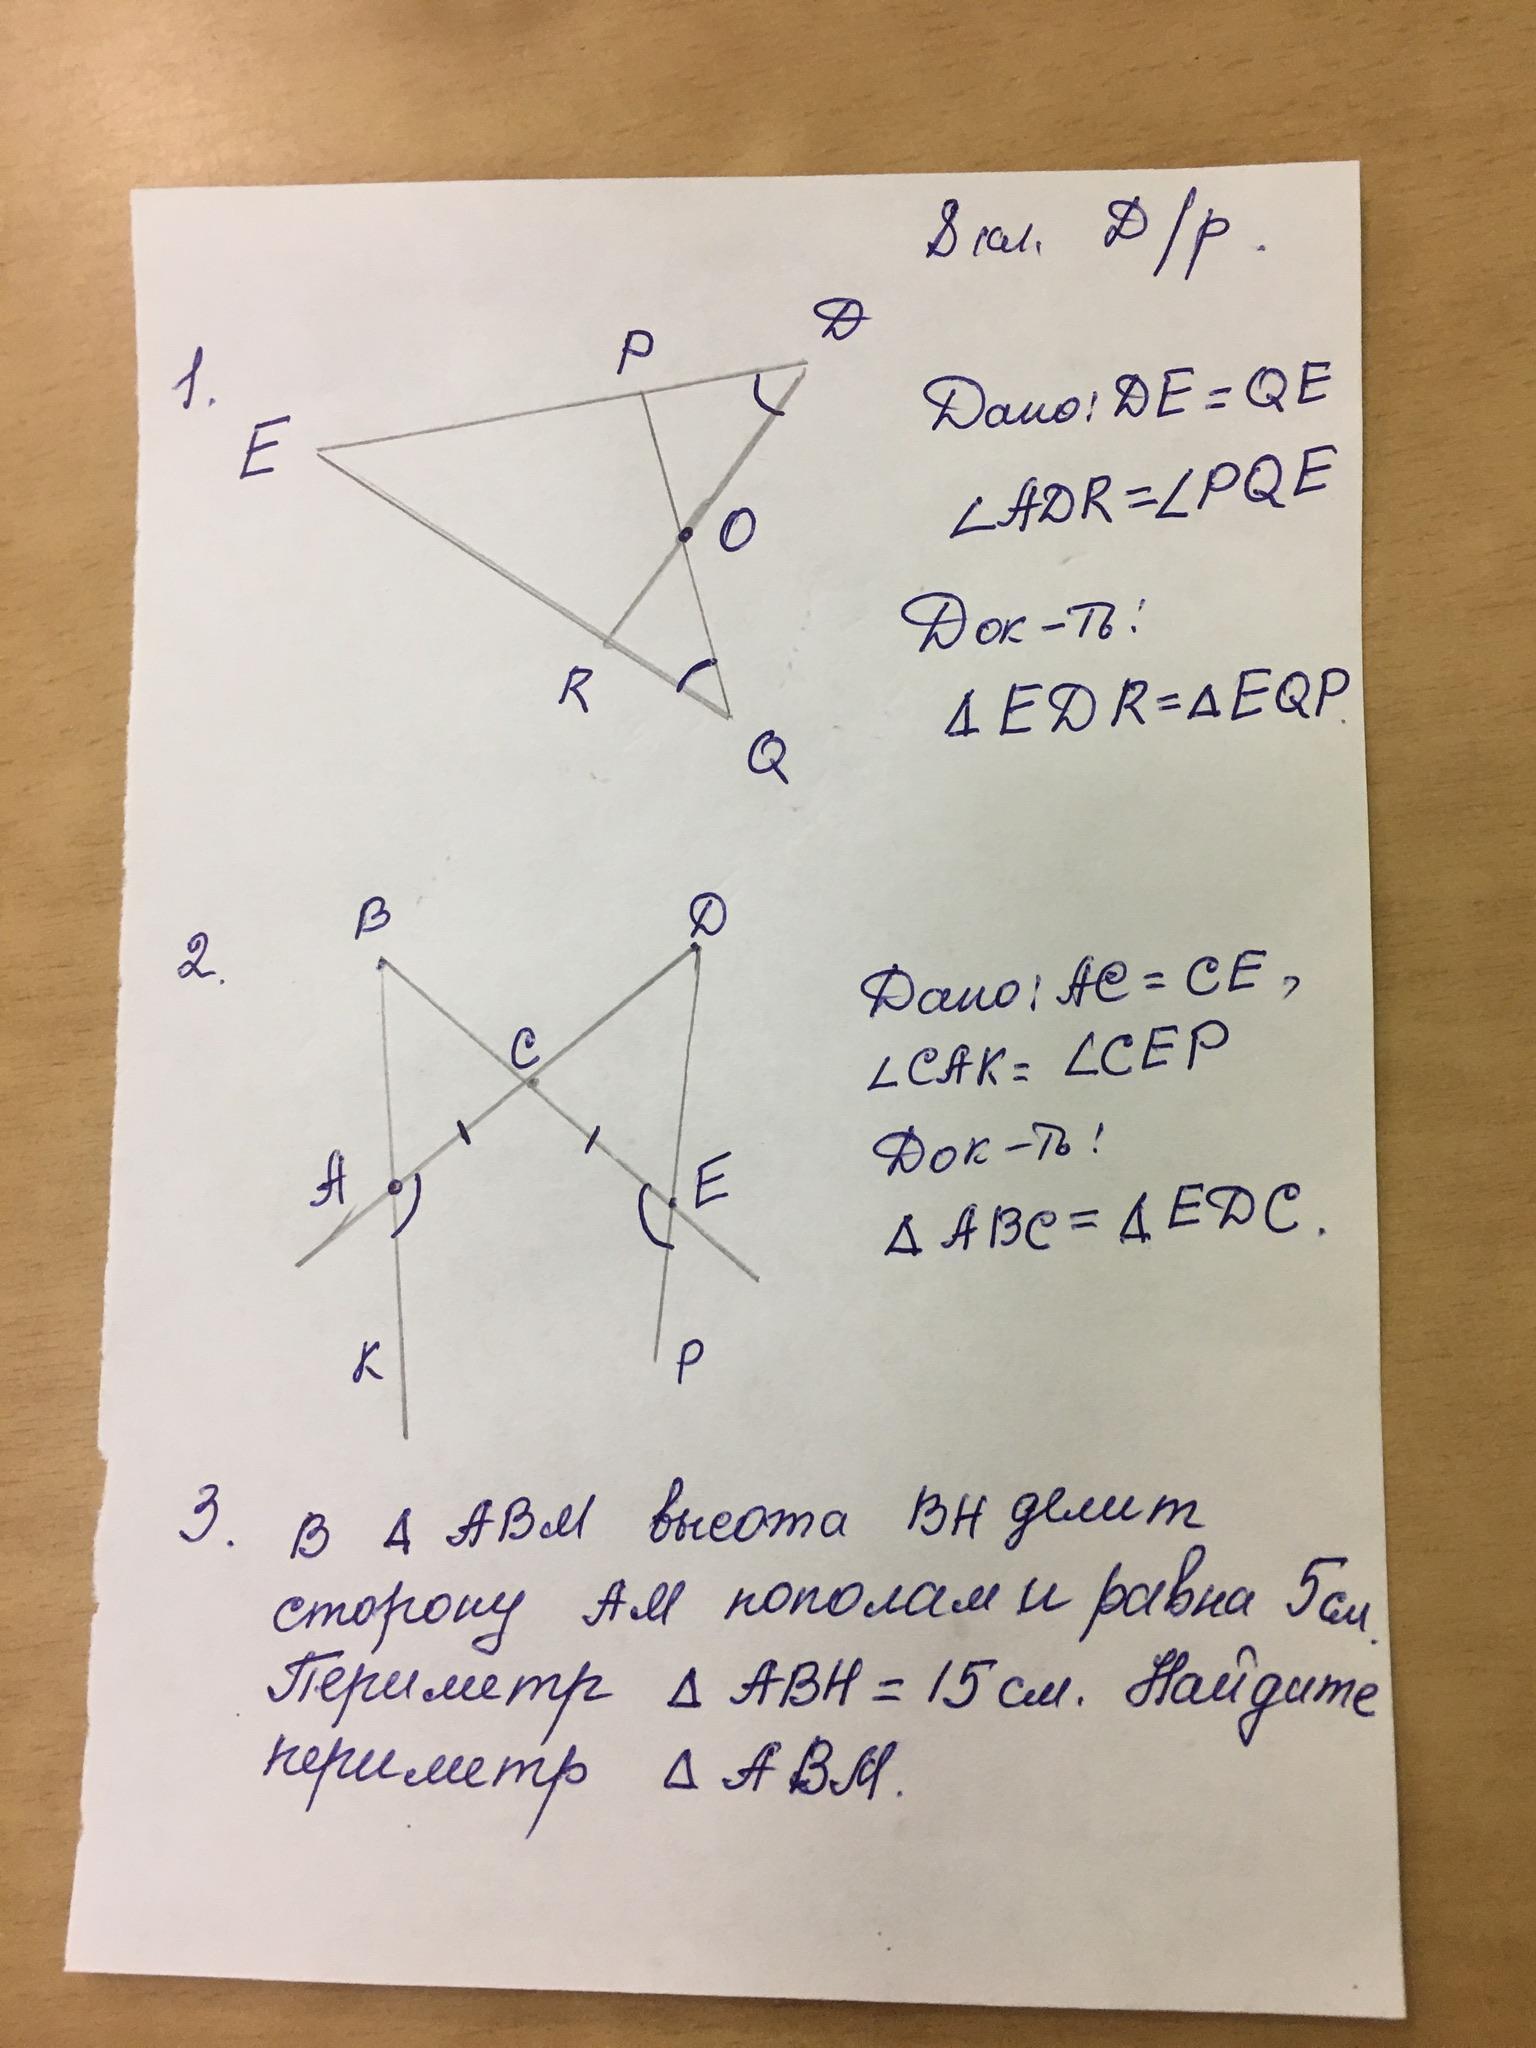 8 кл. D/р.
1.
E
P
D
O
R
Q
Дано: DE = QE
∠ADR = ∠PQE
Док-ть:
Δ EDR = Δ EQP.
2.
B
D
C
A
E
K
P
Дано: AC = CE,
∠CAK = ∠CEP
Док-ть:
Δ ABC = Δ EDC.
3. В Δ ABM высота BH делит
сторону AM пополам и равна 5 см.
Периметр Δ ABH = 15 см. Найдите
периметр Δ ABM.